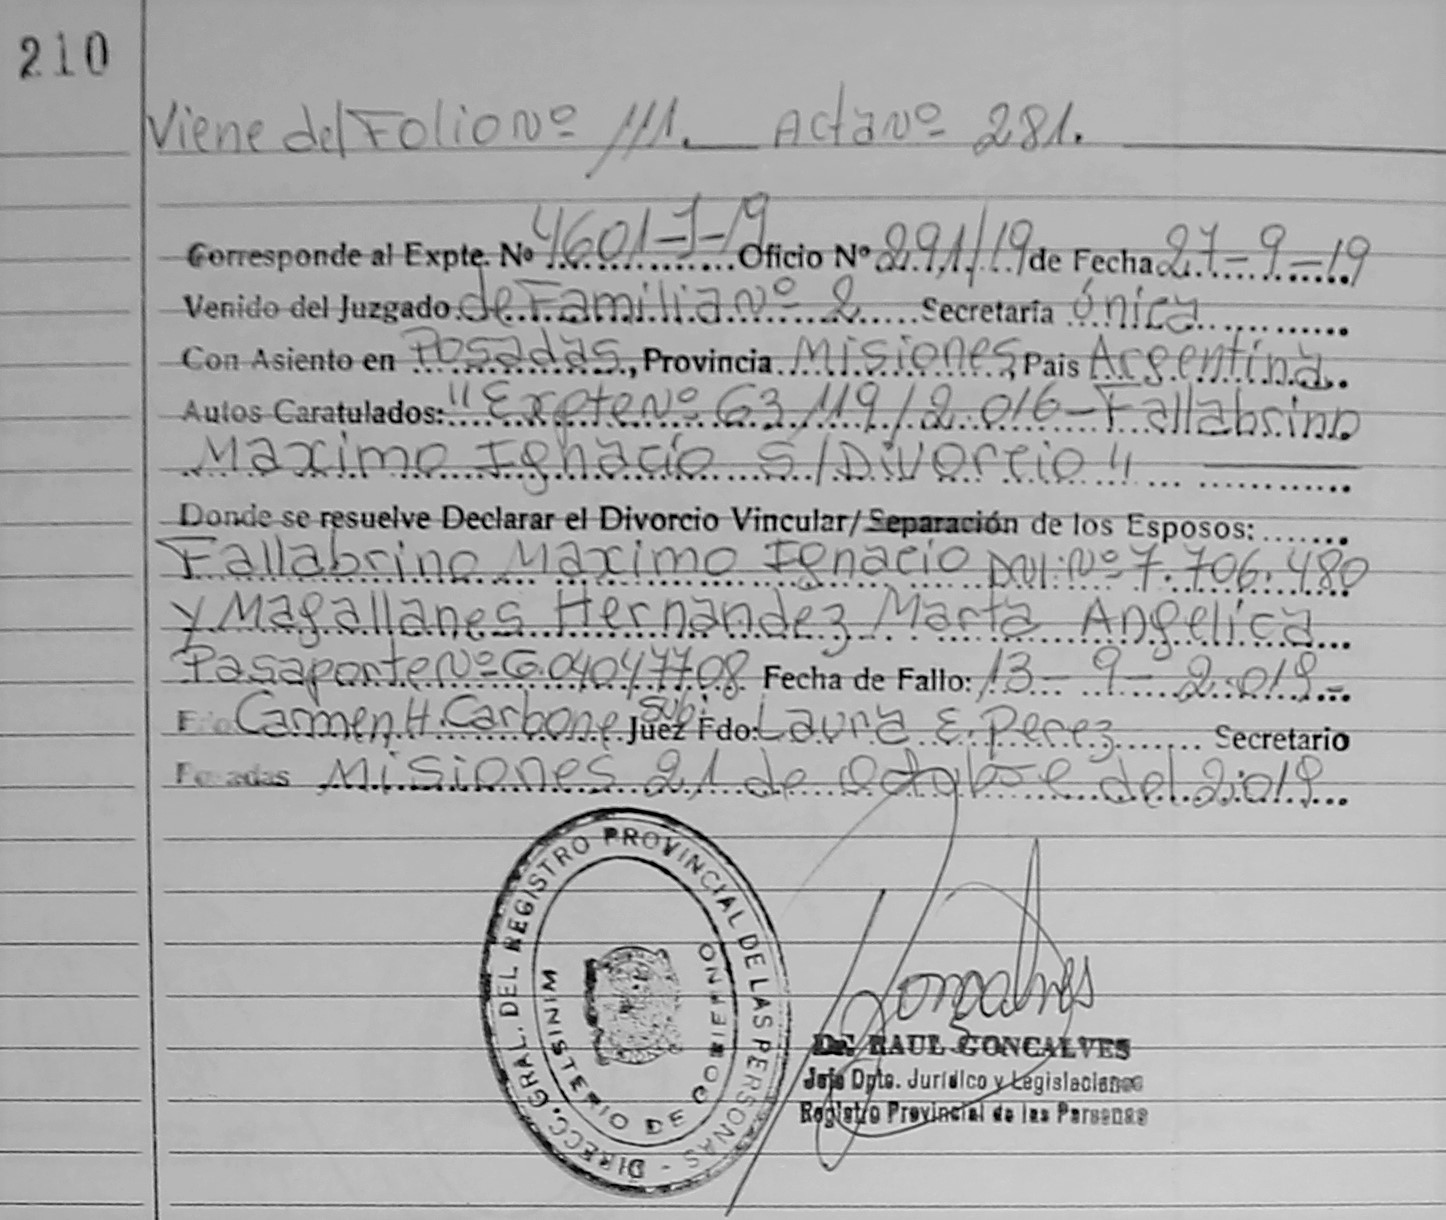 210
Viene del Folio Nº 111. Acta Nº 281.
Corresponde al Expte. Nº 4601-J-19 Oficio Nº 291/19 de Fecha 27-9-19
Venido del Juzgado de Familia Nº 2 Secretaría única
Con Asiento en Posadas, Provincia Misiones, País Argentina.
Autos Caratulados: "Expte Nº 63119/2.016 - Fallabrino
Maximo Ignacio S/Divorcio"
Donde se resuelve Declarar el Divorcio Vincular/Separación de los Esposos:
Fallabrino Maximo Ignacio DNI: Nº 7.706.480
y Magallanes Hernandez Marta Angelica
Pasaporte Nº G.04047708 Fecha de Fallo: 13-9-2.019-
Carmen H. Carbone Sub. Juez Fdo: Laura E. Perez Secretario
Posadas Misiones 21 de octubre del 2.019
DIRECC. GRAL. DEL REGISTRO PROVINCIAL DE LAS PERSONAS -
MINISTERIO DE GOBIERNO
Goncalves
Dr. RAUL GONCALVES
Jefe Dpto. Jurídico y Legislaciones
Registro Provincial de las Personas